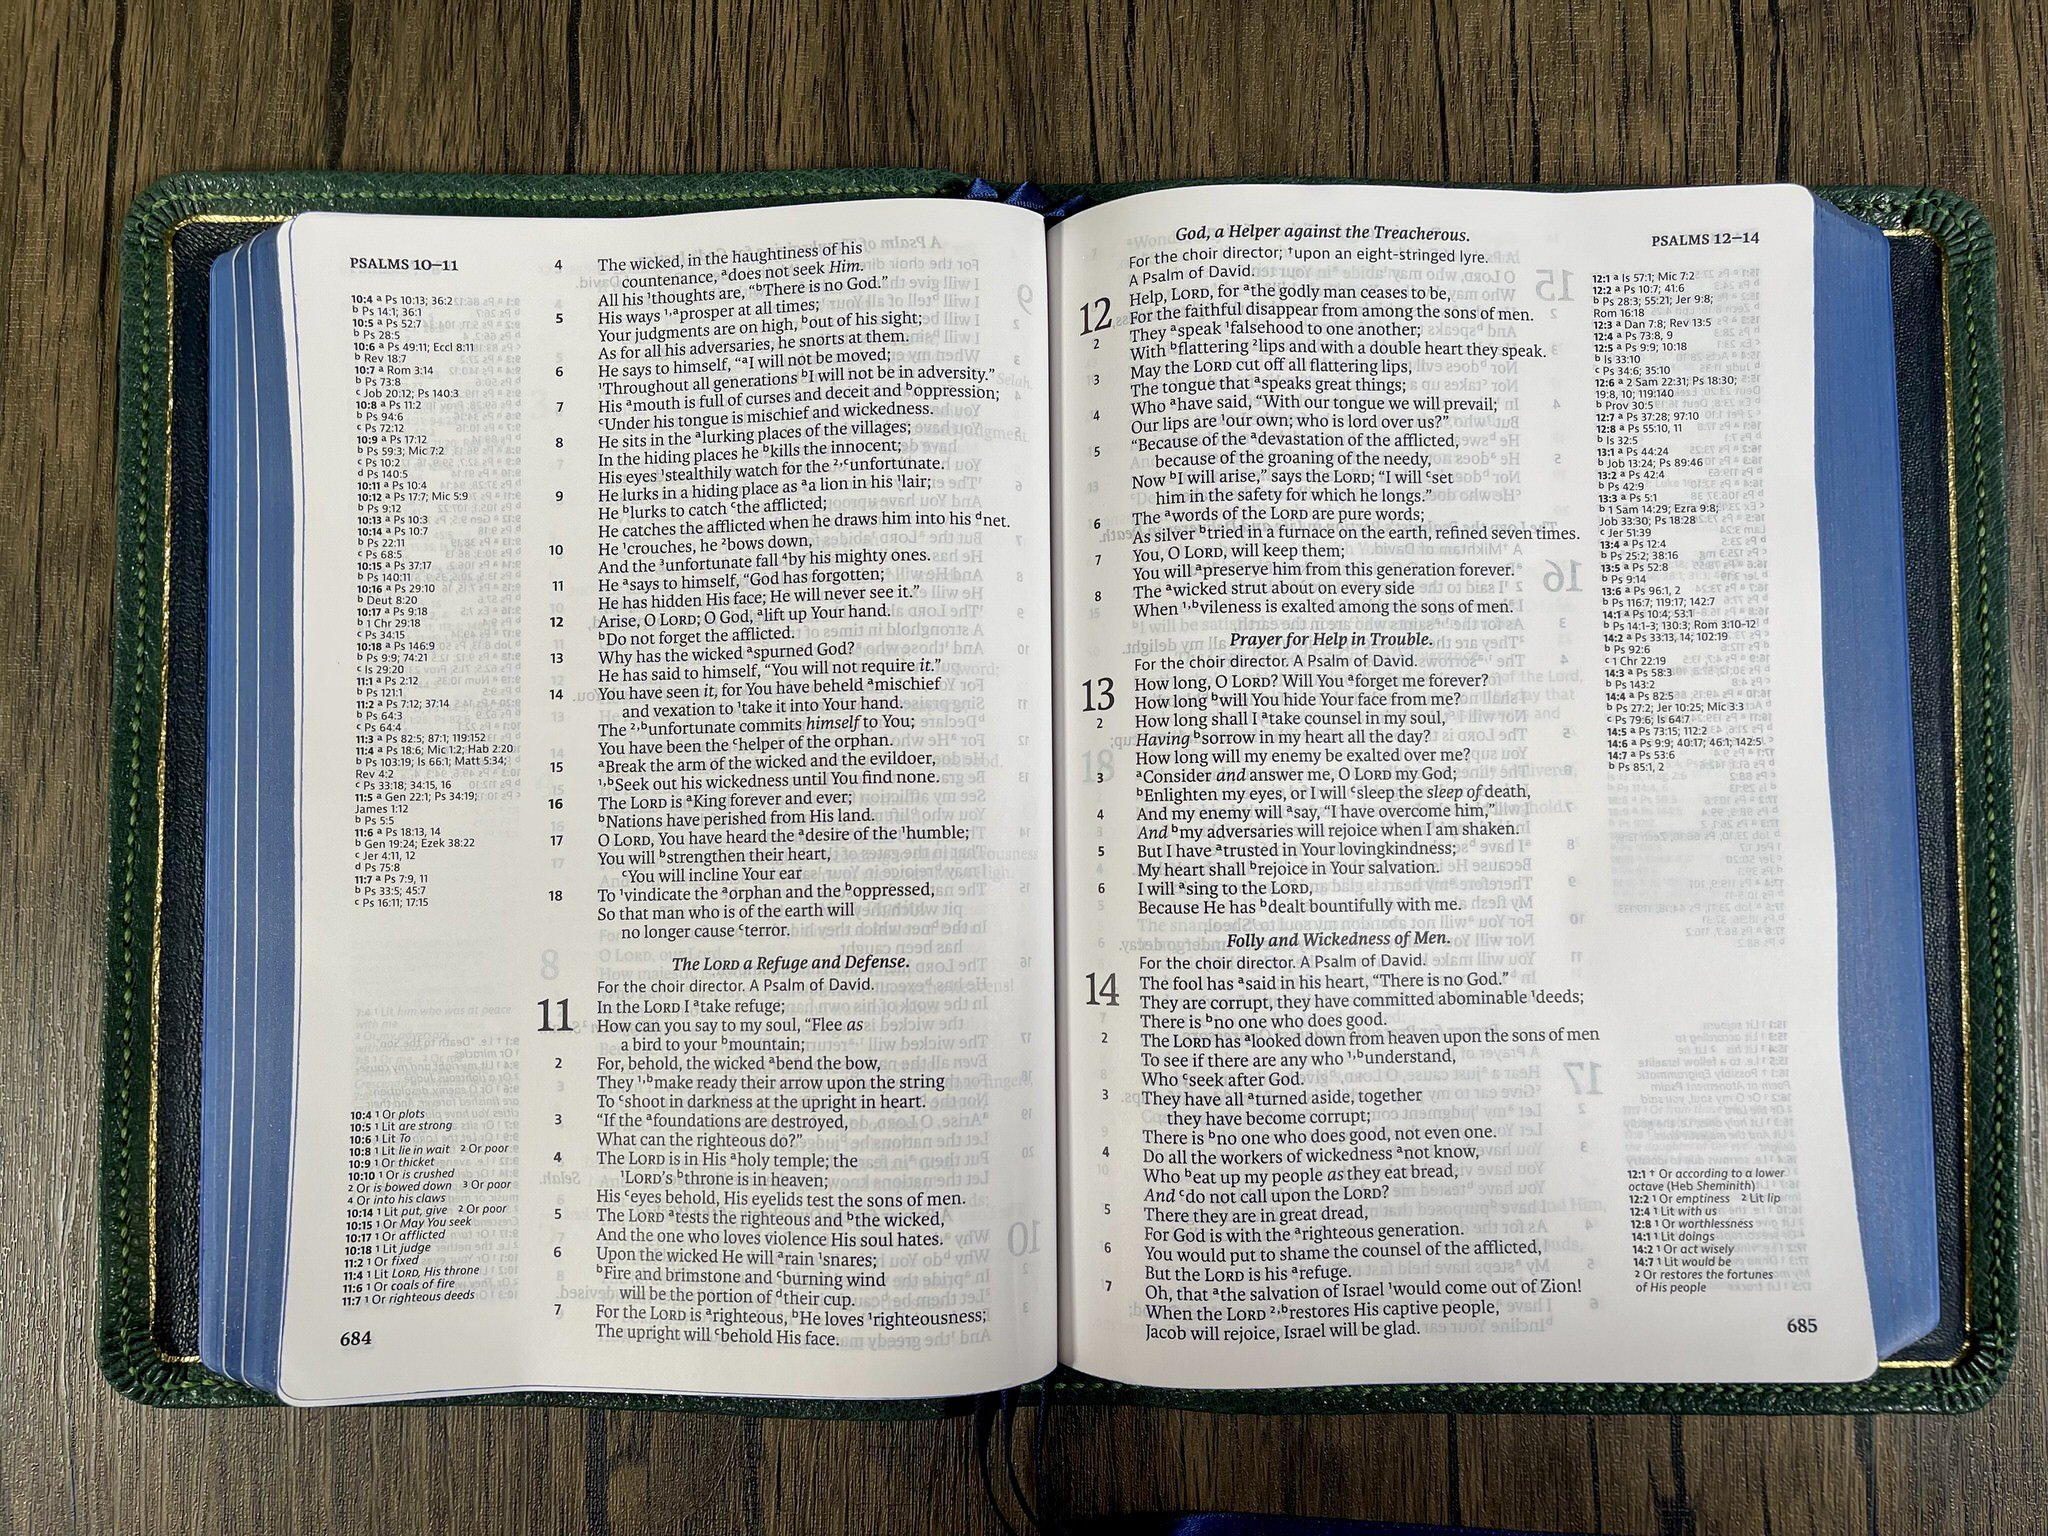 PSALMS 10—11
10:4 a Ps 10:13; 36:2
b Ps 14:1; 36:1
10:5 a Ps 52:7
b Ps 28:5
10:6 a Ps 49:11; Eccl 8:11
b Rev 18:7
10:7 a Rom 3:14
b Ps 73:8
c Job 20:12; Ps 140:3
10:8 a Ps 11:2
b Ps 94:6
c Ps 72:12
10:9 a Ps 17:12
b Ps 59:3; Mic 7:2
c Ps 10:2
d Ps 140:5
10:11 a Ps 10:4
10:12 a Ps 17:7; Mic 5:9
b Ps 9:12
10:13 a Ps 10:3
10:14 a Ps 10:7
b Ps 22:11
c Ps 68:5
10:15 a Ps 37:17
b Ps 140:11
10:16 a Ps 29:10
b Deut 8:20
10:17 a Ps 9:18
b 1 Chr 29:18
c Ps 34:15
10:18 a Ps 146:9
b Ps 9:9; 74:21
c Is 29:20
11:1 a Ps 2:12
b Ps 121:1
11:2 a Ps 7:12; 37:14
b Ps 64:3
c Ps 64:4
11:3 a Ps 82:5; 87:1; 119:152
11:4 a Ps 18:6; Mic 1:2; Hab 2:20
b Ps 103:19; Is 66:1; Matt 5:34;
Rev 4:2
c Ps 33:18; 34:15, 16
11:5 a Gen 22:1; Ps 34:19;
James 1:12
b Ps 5:5
11:6 a Ps 18:13, 14
b Gen 19:24; Ezek 38:22
c Jer 4:11, 12
d Ps 75:8
11:7 a Ps 7:9, 11
b Ps 33:5; 45:7
c Ps 16:11; 17:15
10:4 1 Or plots
10:5 1 Lit are strong
10:6 1 Lit To
10:8 1 Lit lie in wait 2 Or poor
10:9 1 Or thicket
10:10 1 Or is crushed
2 Or is bowed down 3 Or poor
4 Or into his claws
10:14 1 Lit put, give 2 Or poor
10:15 1 Or May You seek
10:17 1 Or afflicted
10:18 1 Lit judge
11:2 1 Or fixed
11:4 1 Lit LORD, His throne
11:6 1 Or coals of fire
11:7 1 Or righteous deeds
684
4 The wicked, in the haughtiness of his
countenance, adoes not seek Him.
All his 1thoughts are, “bThere is no God.”
5 His ways 1,aprosper at all times;
Your judgments are on high, bout of his sight;
As for all his adversaries, he snorts at them.
6 He says to himself, “aI will not be moved;
1Throughout all generations bI will not be in adversity.”
7 His amouth is full of curses and deceit and boppression;
cUnder his tongue is mischief and wickedness.
8 He sits in the alurking places of the villages;
In the hiding places he bkills the innocent;
His eyes 1stealthily watch for the 2,cunfortunate.
9 He lurks in a hiding place as aa lion in his 1lair;
He blurks to catch cthe afflicted;
He catches the afflicted when he draws him into his dnet.
10 He 1crouches, he 2bows down,
And the 3unfortunate fall 4by his mighty ones.
11 He asays to himself, “God has forgotten;
He has hidden His face; He will never see it.”
12 Arise, O LORD; O God, alift up Your hand.
bDo not forget the afflicted.
13 Why has the wicked aspurned God?
He has said to himself, “You will not require it.”
14 You have seen it, for You have beheld amischief
and vexation to 1take it into Your hand.
The 2,bunfortunate commits himself to You;
You have been the chelper of the orphan.
15 aBreak the arm of the wicked and the evildoer,
1,bSeek out his wickedness until You find none.
16 The LORD is aKing forever and ever;
bNations have perished from His land.
17 O LORD, You have heard the adesire of the 1humble;
You will bstrengthen their heart,
cYou will incline Your ear
18 To 1vindicate the aorphan and the boppressed,
So that man who is of the earth will
no longer cause cterror.
The LORD a Refuge and Defense.
For the choir director. A Psalm of David.
11 In the LORD I atake refuge;
How can you say to my soul, “Flee as
a bird to your bmountain;
2 For, behold, the wicked abend the bow,
They 1,bmake ready their arrow upon the string
To cshoot in darkness at the upright in heart.
3 “If the afoundations are destroyed,
What can the righteous do?”
4 The LORD is in His aholy temple; the
1LORD’S bthrone is in heaven;
His ceyes behold, His eyelids test the sons of men.
5 The LORD atests the righteous and bthe wicked,
And the one who loves violence His soul hates.
6 Upon the wicked He will arain 1snares;
bFire and brimstone and cburning wind
will be the portion of dtheir cup.
7 For the LORD is arighteous, bHe loves 1righteousness;
The upright will cbehold His face.
God, a Helper against the Treacherous.
For the choir director; 1upon an eight-stringed lyre.
A Psalm of David.
12 Help, LORD, for athe godly man ceases to be,
For the faithful disappear from among the sons of men.
2 They aspeak 1falsehood to one another;
With bflattering 2lips and with a double heart they speak.
3 May the LORD cut off all flattering lips,
The tongue that aspeaks great things;
4 Who ahave said, “With our tongue we will prevail;
Our lips are 1our own; who is lord over us?”
5 “Because of the adevastation of the afflicted,
because of the groaning of the needy,
Now bI will arise,” says the LORD; “I will cset
him in the safety for which he longs.”
6 The awords of the LORD are pure words;
As silver btried in a furnace on the earth, refined seven times.
7 You, O LORD, will keep them;
You will apreserve him from this generation forever.
8 The awicked strut about on every side
When 1,bvileness is exalted among the sons of men.
Prayer for Help in Trouble.
For the choir director. A Psalm of David.
13 How long, O LORD? Will You aforget me forever?
How long bwill You hide Your face from me?
2 How long shall I atake counsel in my soul,
Having bsorrow in my heart all the day?
How long will my enemy be exalted over me?
3 aConsider and answer me, O LORD my God;
bEnlighten my eyes, or I will csleep the sleep of death,
4 And my enemy will asay, “I have overcome him,”
And bmy adversaries will rejoice when I am shaken.
5 But I have atrusted in Your lovingkindness;
My heart shall brejoice in Your salvation.
6 I will asing to the LORD,
Because He has bdealt bountifully with me.
Folly and Wickedness of Men.
For the choir director. A Psalm of David.
14 The fool has asaid in his heart, “There is no God.”
They are corrupt, they have committed abominable 1deeds;
There is bno one who does good.
2 The LORD has alooked down from heaven upon the sons of men
To see if there are any who 1,bunderstand,
Who cseek after God.
3 They have all aturned aside, together
they have become corrupt;
There is bno one who does good, not even one.
4 Do all the workers of wickedness anot know,
Who beat up my people as they eat bread,
And cdo not call upon the LORD?
5 There they are in great dread,
For God is with the arighteous generation.
6 You would put to shame the counsel of the afflicted,
But the LORD is his arefuge.
7 Oh, that athe salvation of Israel 1would come out of Zion!
When the LORD 2,brestores His captive people,
Jacob will rejoice, Israel will be glad.
PSALMS 12—14
12:1 a Is 57:1; Mic 7:2
12:2 a Ps 10:7; 41:6
b Ps 28:3; 55:21; Jer 9:8;
Rom 16:18
12:3 a Dan 7:8; Rev 13:5
12:4 a Ps 73:8, 9
12:5 a Ps 9:9; 10:18
b Is 33:10
c Ps 34:6; 35:10
12:6 a 2 Sam 22:31; Ps 18:30;
19:8, 10; 119:140
b Prov 30:5
12:7 a Ps 37:28; 97:10
12:8 a Ps 55:10, 11
b Is 32:5
13:1 a Ps 44:24
b Job 13:24; Ps 89:46
13:2 a Ps 42:4
b Ps 42:9
13:3 a Ps 5:1
b 1 Sam 14:29; Ezra 9:8;
Job 33:30; Ps 18:28
c Jer 51:39
13:4 a Ps 12:4
b Ps 25:2; 38:16
13:5 a Ps 52:8
b Ps 9:14
13:6 a Ps 96:1, 2
b Ps 116:7; 119:17; 142:7
14:1 a Ps 10:4; 53:1
b Ps 14:1-3; 130:3; Rom 3:10-12
14:2 a Ps 33:13, 14; 102:19
b Ps 92:6
c 1 Chr 22:19
14:3 a Ps 58:3
b Ps 143:2
14:4 a Ps 82:5
b Ps 27:2; Jer 10:25; Mic 3:3
c Ps 79:6; Is 64:7
14:5 a Ps 73:15; 112:2
14:6 a Ps 9:9; 40:17; 46:1; 142:5
14:7 a Ps 53:6
b Ps 85:1, 2
12:1 † Or according to a lower
octave (Heb Sheminith)
12:2 1 Or emptiness 2 Lit lip
12:4 1 Lit with us
12:8 1 Or worthlessness
14:1 1 Lit doings
14:2 1 Or act wisely
14:7 1 Lit would be
2 Or restores the fortunes
of His people
685